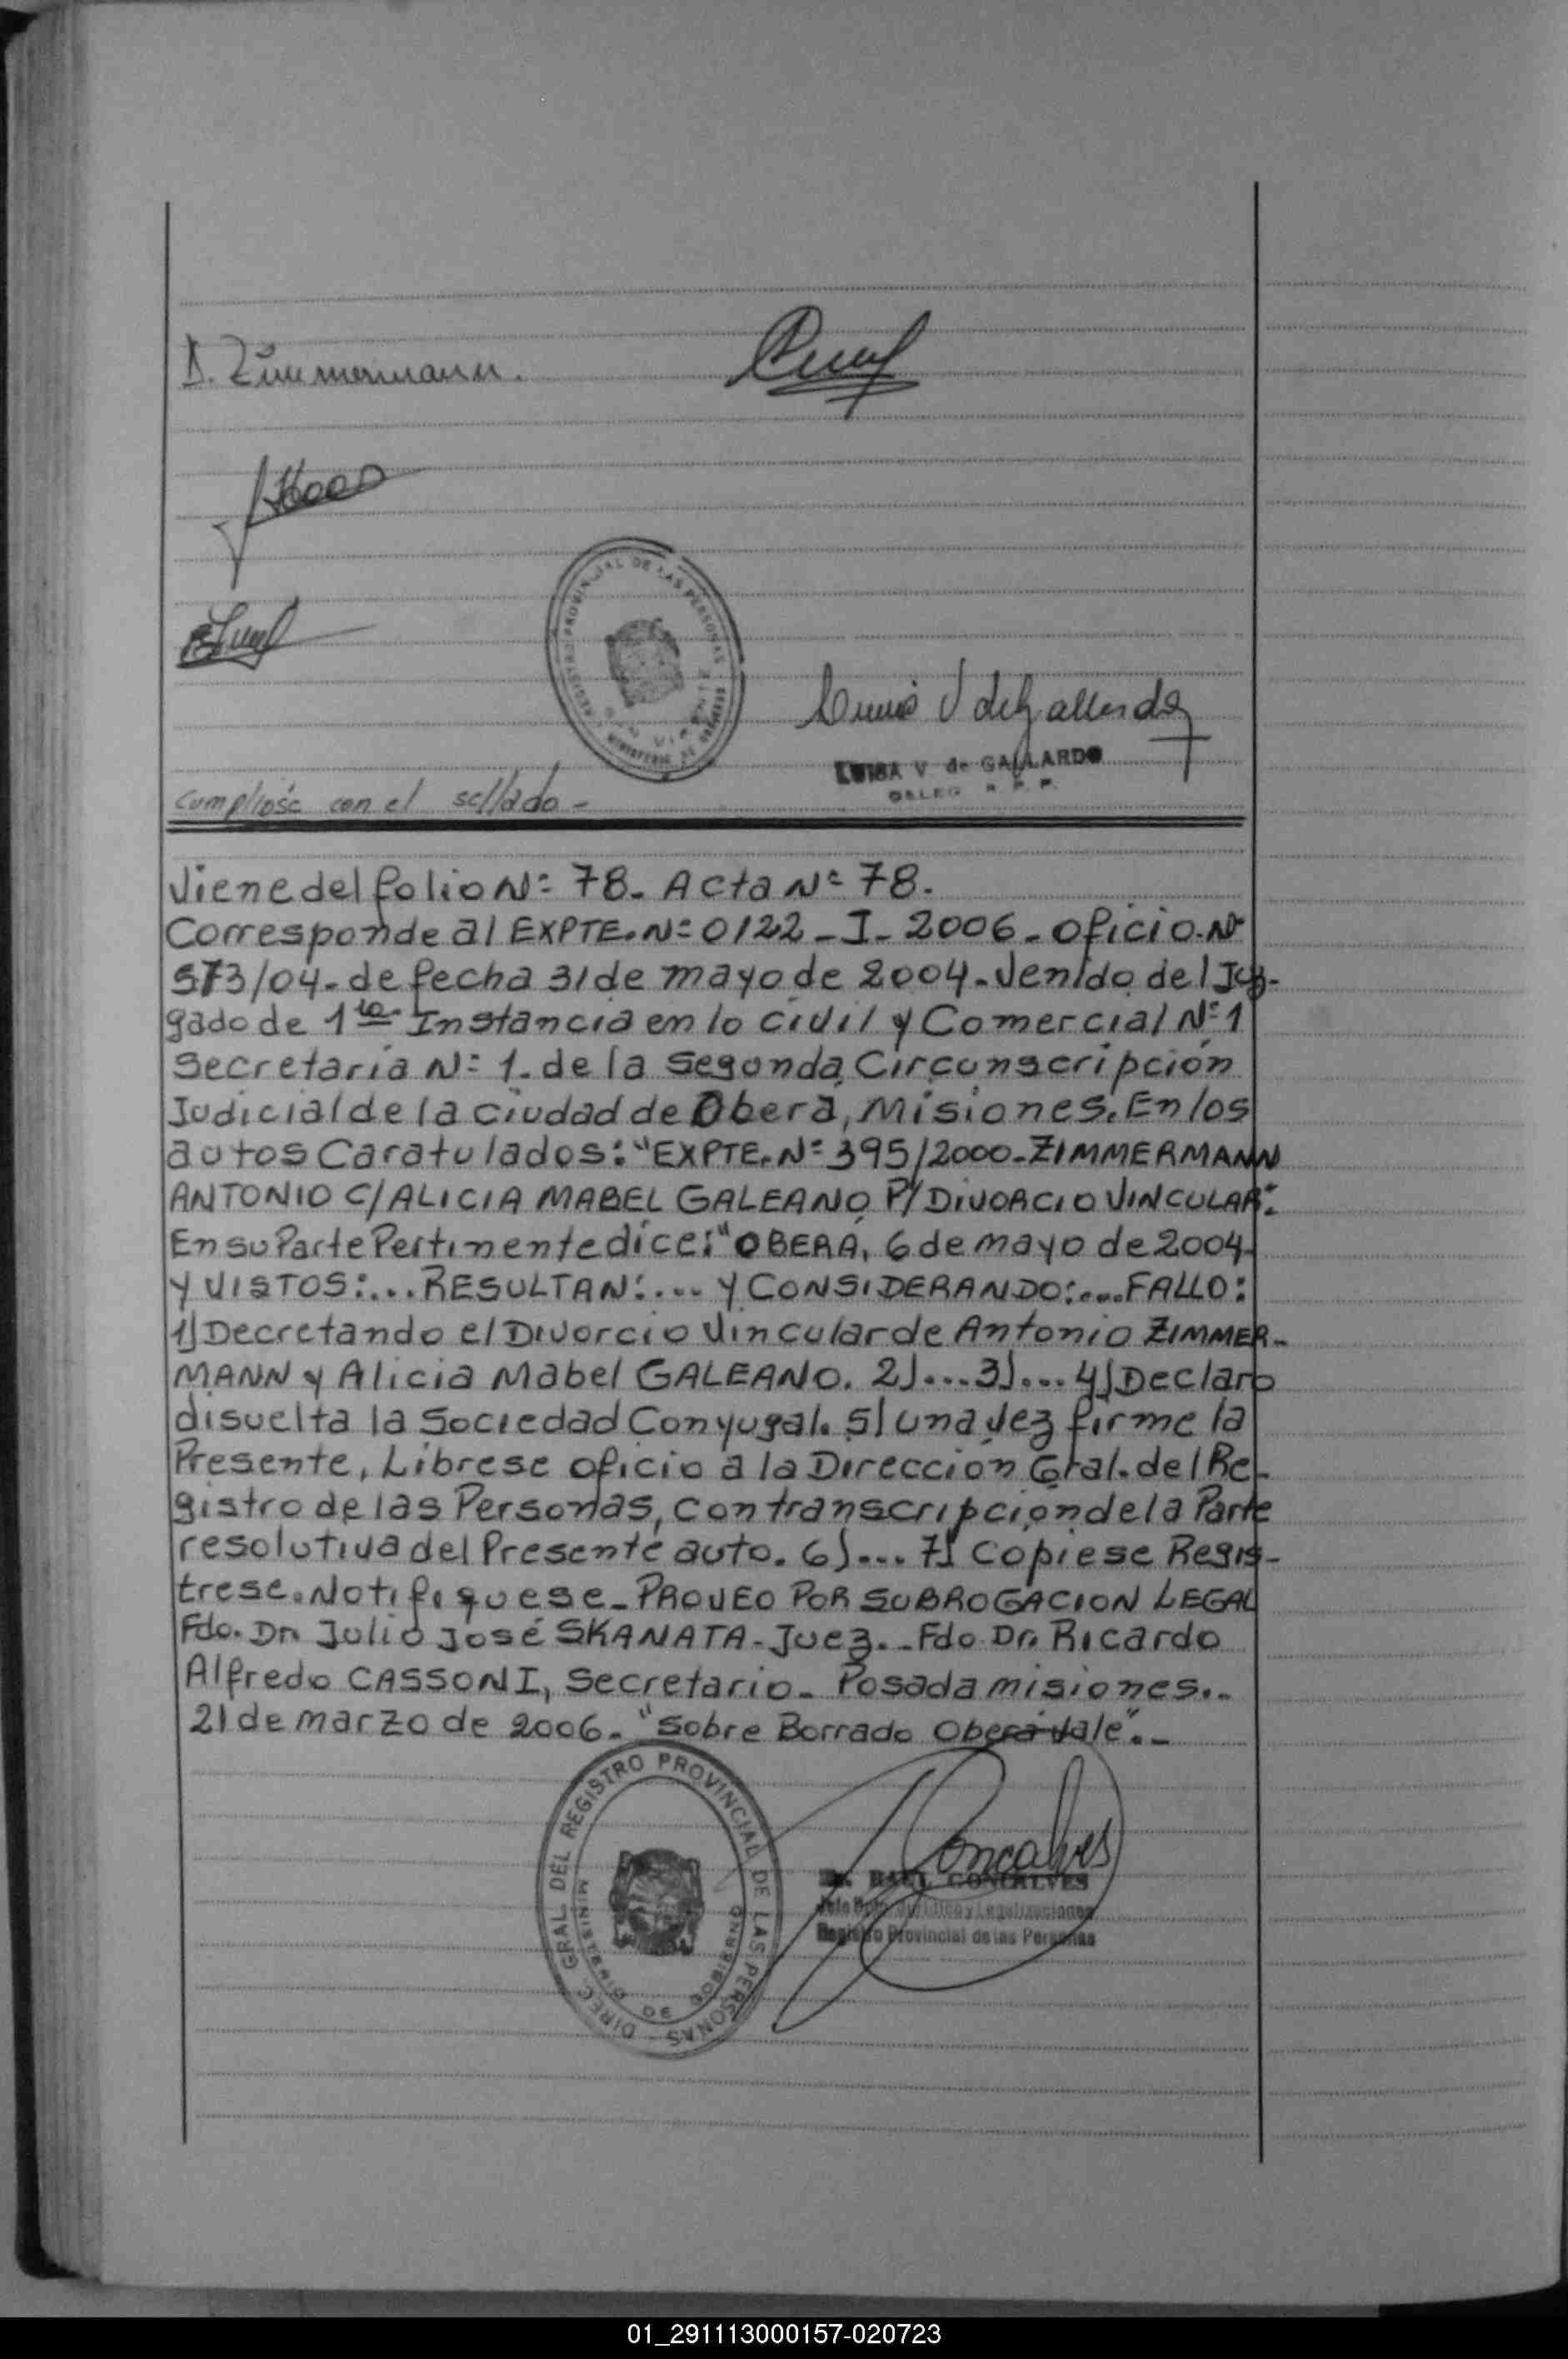 Zimmermann.
REGISTRO PROVINCIAL DE LAS PERSONAS
MINISTERIO DE GOBIERNO
V de Gallardo
LUISA V. de GALLARDO
DELEG. R. P. P.
Cumpliose con el sellado -
Viene del folio Nº 78. Acta Nº 78.
Corresponde al EXPTE. Nº 0122 - I - 2006 - oficio. Nº
573/04 - de fecha 31 de mayo de 2004 - Venido del Juz-
gado de 1ra. Instancia en lo Civil y Comercial Nº 1
Secretaría Nº 1. de la Segunda Circunscripción
Judicial de la ciudad de Oberá, Misiones. En los
autos Caratulados: "EXPTE. Nº 395/2000 - ZIMMERMANN
ANTONIO C/ ALICIA MABEL GALEANO P/ DIVORCIO VINCULAR".
En su Parte Pertinente dice: "OBERA, 6 de mayo de 2004.
Y VISTOS:... RESULTAN:... Y CONSIDERANDO:.... FALLO:
1) Decretando el Divorcio Vincular de Antonio ZIMMER-
MANN y Alicia Mabel GALEANO. 2)... 3)... 4) Declaro
disuelta la Sociedad Conyugal. 5) una vez firme la
Presente, Librese oficio a la Dirección Gral. del Re-
gistro de las Personas, con transcripción de la Parte
resolutiva del Presente auto. 6)... 7) Copiese Regis-
trese. Notifiquese - PROVEO POR SUBROGACION LEGAL
Fdo. Dr. Julio José SKANATA - Juez.- Fdo. Dr. Ricardo
Alfredo CASSONI, Secretario - Posada misiones.-
21 de marzo de 2006. "Sobre Borrado Oberá Vale".-
DIREC. GRAL DEL REGISTRO PROVINCIAL DE LAS PERSONAS
MINISTERIO DE GOBIERNO
Goncalves
Dr. RAUL GONCALVES
Jefe Dpto. Jurídico y Legalizaciones
Registro Provincial de las Personas
01_291113000157-020723